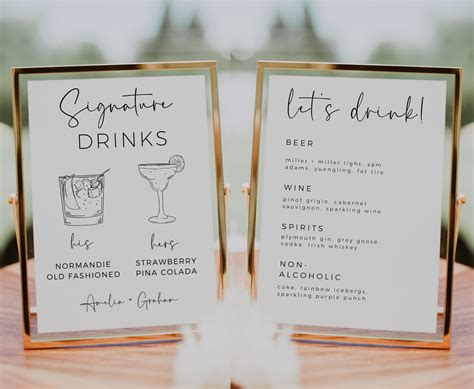 Signature
DRINKS
his
hers
NORMANDIE
OLD FASHIONED
STRAWBERRY
PINA COLADA
Amelia + Graham
let's drink!
BEER
miller + miller light, sam
adams, yuengling, fat tire
WINE
pinot grigio, cabernet
sauvignon, sparkling wine
SPIRITS
plymouth gin, grey goose
vodka, Irish whiskey
NON-
ALCOHOLIC
coke, rainbow icebergs,
sparkling purple punch